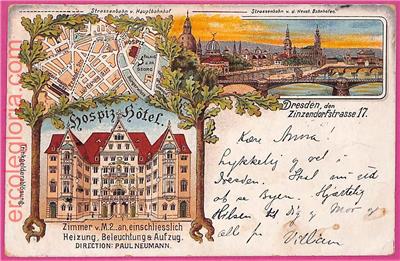 Strassenbahn v. Hauptbahnhof
Strassenbahn v. d. Neust. Bahnhofen.
PALAIS
GEORG
Hospiz-Hôtel.
Dresden, den
Zinzendorfstrasse 17.
Kære Anna!
Lykkelig og vel i
Dresden. Skal nu ud
at se Byen. Hjertelig
Hilsen til dig og Mor og
alle fra Villiam
Zimmer v. M. 2._an, einschliesslich
Heizung, Beleuchtung & Aufzug.
DIRECTION: PAUL NEUMANN.
ercolegloria.com